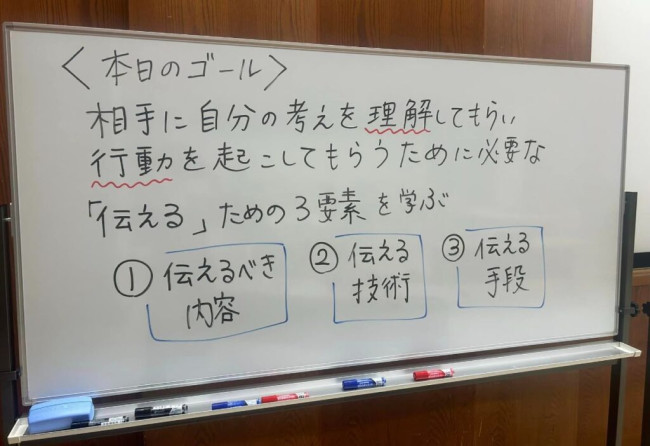 〈本日のゴール〉
相手に自分の考えを理解してもらい
行動を起こしてもらうために必要な
「伝える」ための3要素を学ぶ
① 伝えるべき
内容
② 伝える
技術
③ 伝える
手段